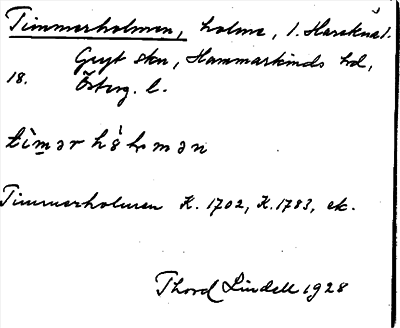 Timmerholmen, holme, l. Harsknal.
Gryt skn, Hammarkinds hd,
18. Österg. l.
tìmər hòlmən
Timmerholmen K. 1702, K. 1783, ek.
Thord Lindell 1928